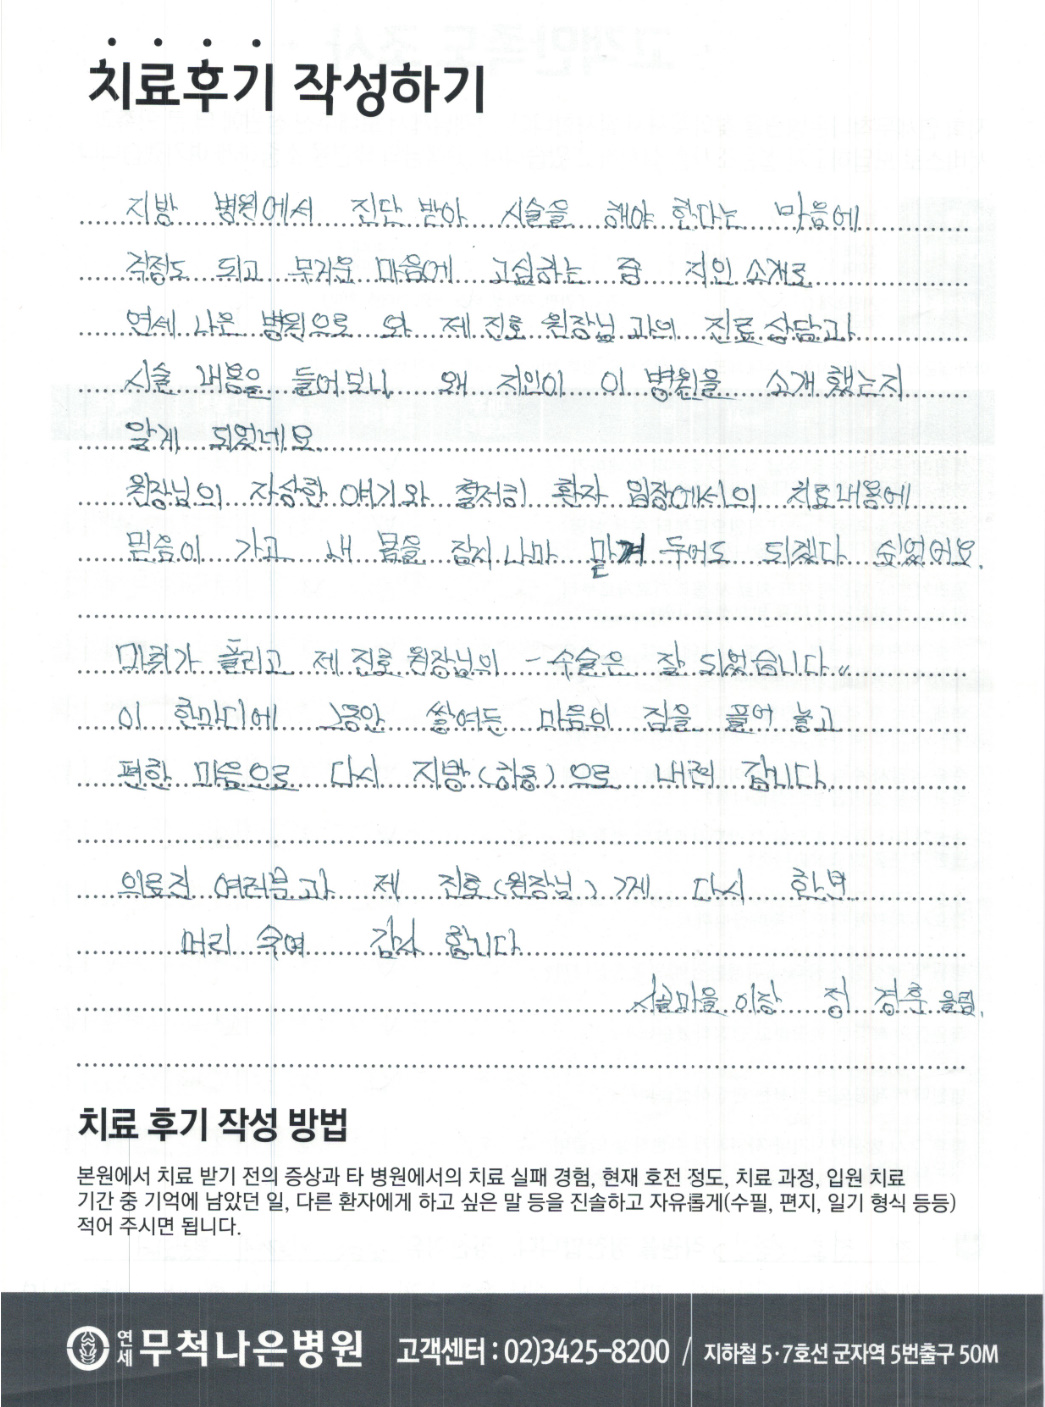 치료후기 작성하기
지방 병원에서 진단 받아 시술을 해야 한다는 마음에
걱정도 되고 무거운 마음에 고심하는 중 지인 소개로
연세 나은 병원으로 와 제 진호 원장님 과의 진료 상담과
시술 내용을 들어보니 왜 지인이 이 병원을 소개 했는지
알게 되었네요
원장님의 자상한 얘기와 철저히 환자 입장에서의 치료내용에
믿음이 가고 내 몸을 잠시나마 맡겨 두어도 되겠다 싶었어요.
마취가 풀리고 제 진호 원장님의 - 수술은 잘 되었습니다. "
이 한마디에 그동안 쌓여든 마음의 짐을 풀어 놓고
편한 마음으로 다시 지방(하동)으로 내려 갑니다.
의료진 여러분과 제 진호(원장님)께 다시 한번
머리 숙여 감사 합니다
시골마을 이장 정 경훈 올림.
치료 후기 작성 방법
본원에서 치료 받기 전의 증상과 타 병원에서의 치료 실패 경험, 현재 호전 정도, 치료 과정, 입원 치료
기간 중 기억에 남았던 일, 다른 환자에게 하고 싶은 말 등을 진솔하고 자유롭게(수필, 편지, 일기 형식 등등)
적어 주시면 됩니다.
연세 무척나은병원 고객센터 : 02)3425-8200 / 지하철 5·7호선 군자역 5번출구 50M